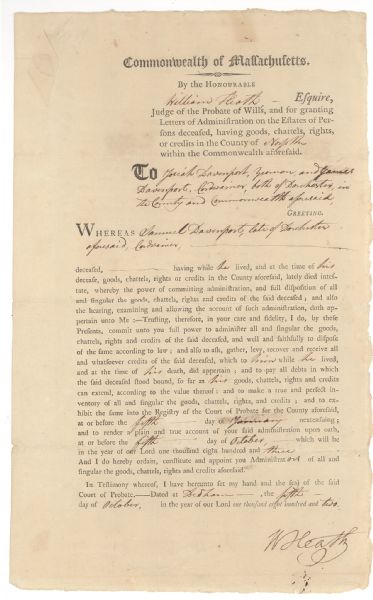 Commonwealth of Massachusetts.
By the Honourable
William Heath Esquire,
Judge of the Probate of Wills, and for granting
Letters of Administration on the Estates of Per-
sons deceased, having goods, chattels, rights,
or credits in the County of Norfolk
within the Commonwealth aforesaid.
To Josiah Davenport, Yeoman and James
Davenport, Cordwainer, both of Dorchester, in
the County and Commonwealth aforesaid
Greeting.
Whereas Samuel Davenport, late of Dorchester
aforesaid, Cordwainer,
deceased, having while he lived, and at the time of his
decease, goods, chattels, rights or credits in the County aforesaid, lately died intes-
tate, whereby the power of committing administration, and full disposition of all
and singular the goods, chattels, rights and credits of the said deceased; and also
the hearing, examining and allowing the account of such administration, doth ap-
pertain unto Me:—Trusting, therefore, in your care and fidelity, I do, by these
Presents, commit unto you full power to administer all and singular the goods,
chattels, rights and credits of the said deceased, and well and faithfully to dispose
of the same according to law; and also to ask, gather, levy, recover and receive all
and whatsoever credits of the said deceased, which to him while he lived,
and at the time of his death, did appertain; and to pay all debts in which
the said deceased stood bound, so far as his goods, chattels, rights and credits
can extend, according to the value thereof: and to make a true and perfect in-
ventory of all and singular the goods, chattels, rights, and credits; and to ex-
hibit the same into the Registry of the Court of Probate for the County aforesaid,
at or before the fifth day of January next ensuing;
and to render a plain and true account of your said administration upon oath,
at or before the fifth day of October which will be
in the year of our Lord one thousand eight hundred and three
And I do hereby ordain, constitute and appoint you Administrators of all and
singular the goods, chattels, rights and credits aforesaid.
In Testimony whereof, I have hereunto set my hand and the seal of the said
Court of Probate.—Dated at Dedham, the fifth
day of October, in the year of our Lord one thousand eight hundred and two.
W Heath